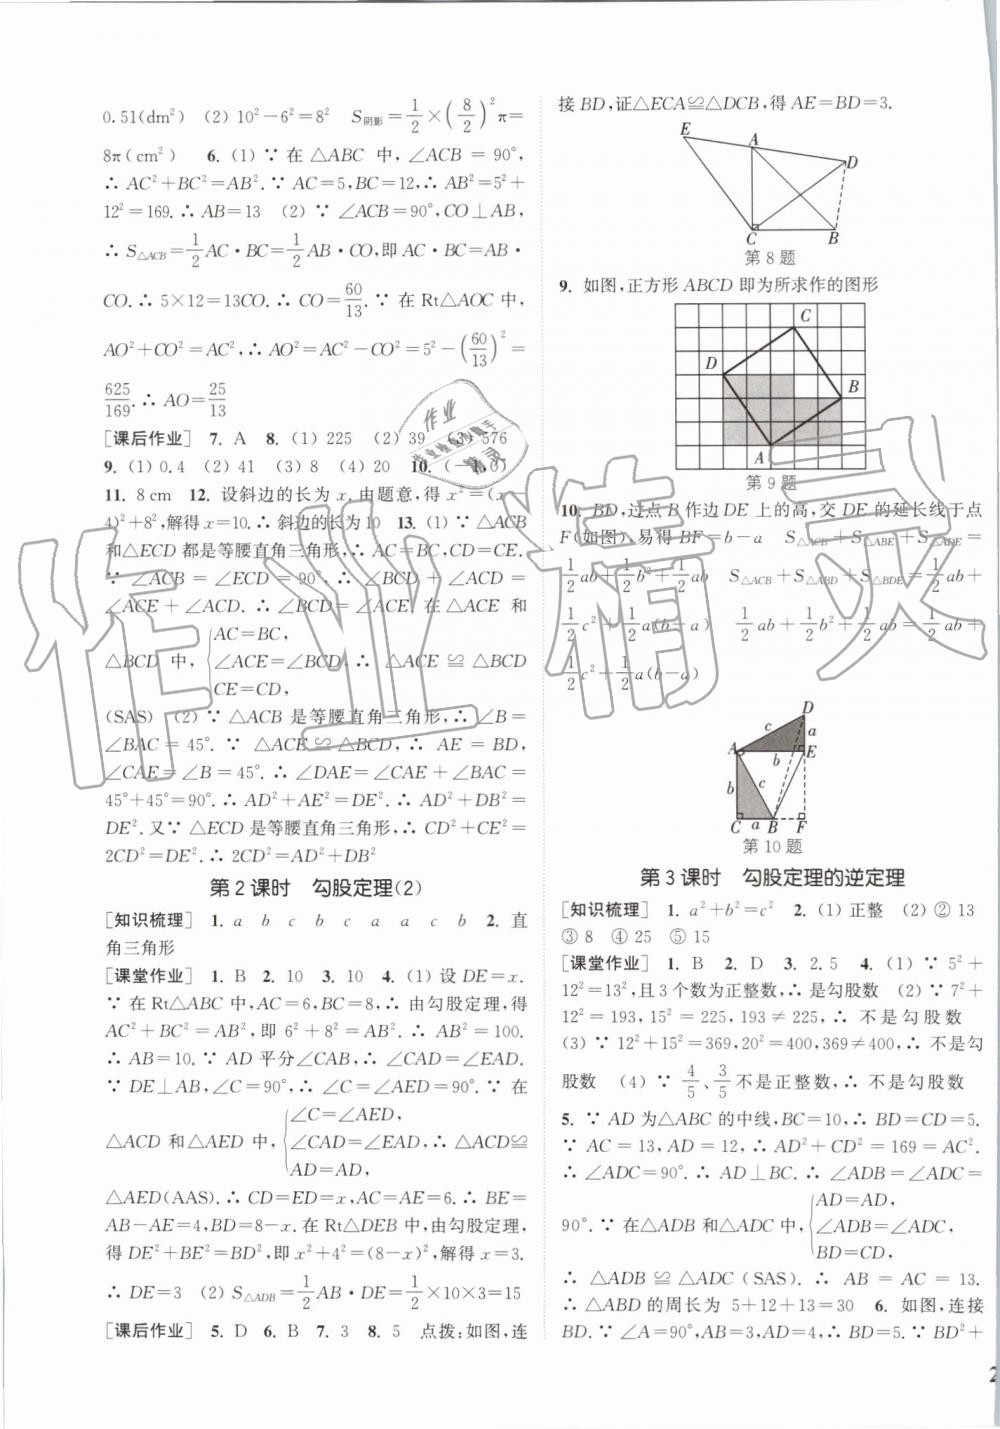 0.51(dm²) (2) 10²−6²=8² S阴影=1/2×(8/2)²π=
8π(cm²) 6. (1) ∵ 在△ABC 中,∠ACB = 90°,
∴ AC²+BC²=AB².∵ AC=5,BC=12,∴ AB²=5²+
12²=169.∴ AB=13 (2) ∵ ∠ACB=90°,CO⊥AB,
∴ S△ACB=1/2AC·BC=1/2AB·CO,即 AC·BC=AB·
CO.∴ 5×12=13CO.∴ CO=60/13.∵ 在 Rt△AOC 中,
AO²+CO²=AC²,∴ AO²=AC²−CO²=5²−(60/13)²=
625/169.∴ AO=25/13
[课后作业] 7. A 8. (1) 225 (2) 39 (3) 576
9. (1) 0.4 (2) 41 (3) 8 (4) 20 10. (−1,0)
11. 8 cm 12. 设斜边的长为 x.由题意,得 x²=(x
4)²+8²,解得 x=10.∴ 斜边的长为 10 13. (1) ∵ △ACB
和△ECD 都是等腰直角三角形,∴ AC=BC,CD=CE.
∵ ∠ACB = ∠ECD = 90°,∴ ∠ACD + ∠ACD =
∠ACE + ∠ACD.∴ ∠BCD = ∠ACE.在△ACE 和
△BCD 中,{AC=BC, ∠ACE=∠BCD, CE=CD, ∴ △ACE ≌ △BCD
(SAS) (2) ∵ △ACB 是等腰直角三角形,∴ ∠B =
∠BAC = 45°. ∵ △ACE≌△BCD,∴ AE = BD,
∠CAE=∠B=45°.∴ ∠DAE=∠CAE+∠BAC=
45°+45°=90°.∴ AD²+AE²=DE².∴ AD²+DB²=
DE².又∵ △ECD 是等腰直角三角形,∴ CD²+CE²=
2CD²=DE².∴ 2CD²=AD²+DB²
第 2 课时 勾股定理(2)
[知识梳理] 1. a b c b c a a c b 2. 直
角三角形
[课堂作业] 1. B 2. 10 3. 10 4. (1) 设 DE=x.
∵ 在 Rt△ABC 中,AC=6,BC=8,∴ 由勾股定理,得
AC²+BC²=AB²,即 6²+8²=AB².∴ AB²=100.
∴ AB=10.∵ AD 平分∠CAB,∴ ∠CAD=∠EAD.
∵ DE⊥AB,∠C=90°,∴ ∠C=∠AED=90°.∵ 在
△ACD 和△AED 中,{∠C=∠AED, ∠CAD=∠EAD, AD=AD, ∴ △ACD≌
△AED(AAS).∴ CD=ED=x,AC=AE=6.∴ BE=
AB−AE=4,BD=8−x.在 Rt△DEB 中,由勾股定理,
得 DE²+BE²=BD²,即 x²+4²=(8−x)²,解得 x=3.
∴ DE=3 (2) S△ADB=1/2AB·DE=1/2×10×3=15
[课后作业] 5. D 6. B 7. 3 8. 5 点拨:如图,连
接 BD,证△ECA≌△DCB,得 AE=BD=3.
E A D C B
第 8 题
9. 如图,正方形 ABCD 即为所求作的图形
C D B A
第 9 题
10. BD,过点 B 作边 DE 上的高,交 DE 的延长线于点
F(如图) 易得 BF=b−a S△ACB+S△ABE+S△ADE=
1/2ab+1/2b²+1/2ab S△ACB+S△ABD+S△BDE=1/2ab+
1/2c²+1/2a(b−a) 1/2ab+1/2b²+1/2ab=1/2ab+
1/2c²+1/2a(b−a)
D c a A b E b c C a B F
第 10 题
第 3 课时 勾股定理的逆定理
[知识梳理] 1. a²+b²=c² 2. (1) 正整 (2) ② 13
③ 8 ④ 25 ⑤ 15
[课堂作业] 1. B 2. D 3. 2.5 4. (1) ∵ 5²+
12²=13²,且 3 个数为正整数,∴ 是勾股数 (2) ∵ 7²+
12²=193,15²=225,193≠225,∴ 不是勾股数
(3) ∵ 12²+15²=369,20²=400,369≠400,∴ 不是勾
股数 (4) ∵ 4/5、3/5不是正整数,∴ 不是勾股数
5. ∵ AD 为△ABC 的中线,BC=10,∴ BD=CD=5.
∵ AC=13,AD=12,∴ AD²+CD²=169=AC².
∴ ∠ADC=90°.∴ AD⊥BC.∴ ∠ADB=∠ADC=
90°.∵ 在△ADB 和△ADC 中,{AD=AD, ∠ADB=∠ADC, BD=CD,
∴ △ADB ≌ △ADC (SAS).∴ AB = AC = 13.
∴ △ABD 的周长为 5+12+13=30 6. 如图,连接
BD.∵ ∠A=90°,AB=3,AD=4,∴ BD=5.∵ BD²+
作业精灵